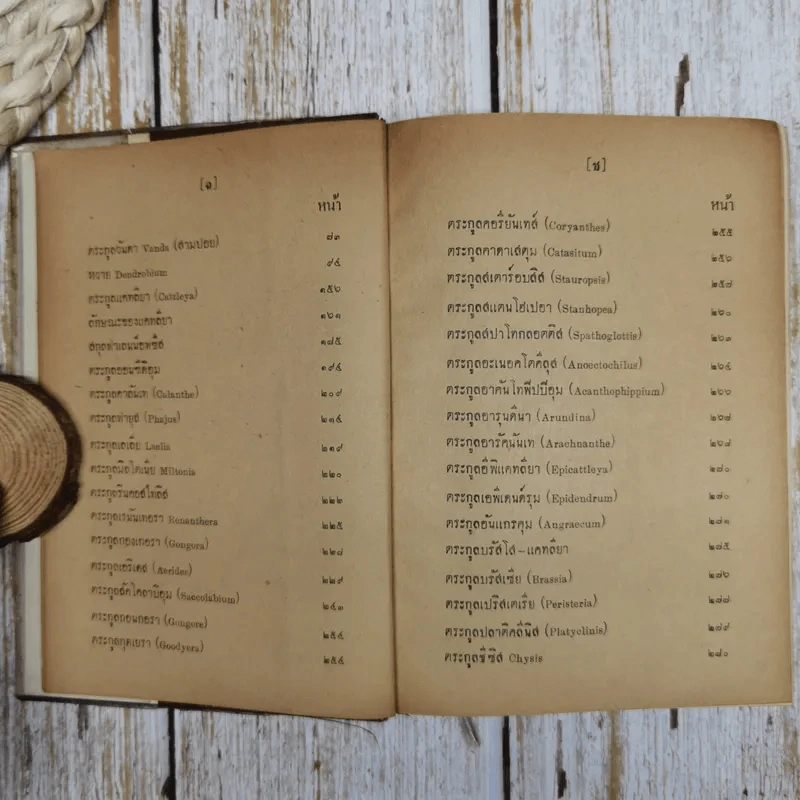 [๑]
หน้า
ตระกูลแวนดา Vanda (สามปอย) ๗๓
หวาย Dendrobium ๙๔
ตระกูลแคทลียา (Cattleya) ๑๕๖
ลักษณะของแคทลียา ๑๖๑
สกุลฟาแลนน็อพซิส ๑๘๕
ตระกูลออนซิดิอุม ๑๙๔
ตระกูลคาลันเท (Calanthe) ๒๐๙
ตระกูลฟายุส (Phajus) ๒๑๔
ตระกูลเลเลีย Laelia ๒๑๙
ตระกูลมิลโตเนีย Miltonia ๒๒๐
ตระกูลรินคอสไทลิส ๒๒๒
ตระกูลเรนันเทอรา Renanthera ๒๒๕
ตระกูลกองเกอรา (Gongora) ๒๒๗
ตระกูลเอริเดส (Aerides) ๒๒๙
ตระกูลสัคโคลาบิอุม (Saccolabium) ๒๔๓
ตระกูลกอนกอรา (Gongore) ๒๕๔
ตระกูลกูดเยรา (Goodyera) ๒๕๔
[ช]
หน้า
ตระกูลคอริยันเทส์ (Coryanthes) ๒๕๕
ตระกูลคาตาเสตุม (Catasitum) ๒๕๖
ตระกูลสเตาร์อบสิส (Stauropsis) ๒๕๗
ตระกูลสแตนโฮเปอา (Stanhopea) ๒๖๐
ตระกูลสปาโทกลอตติส (Spathoglottis) ๒๖๓
ตระกูลอะเนอคโตคิลุส (Anoectochilus) ๒๖๔
ตระกูลอาคันโทพิปบิอุม (Acanthophippium) ๒๖๖
ตระกูลอารุนดินา (Arundina) ๒๖๗
ตระกูลอารัคนันเท (Arachnanthe) ๒๖๘
ตระกูลอิพิแคทลียา (Epicattleya) ๒๗๐
ตระกูลเอพิเดนดรุม (Epidendrum) ๒๗๐
ตระกูลอันแกรคุม (Angraecum) ๒๗๑
ตระกูลบรัสโส-แคทลียา ๒๗๕
ตระกูลบรัสเซีย (Brassia) ๒๗๖
ตระกูลเปริสเตเรีย (Peristeria) ๒๗๗
ตระกูลปลาติคลินิส (Platyclinis) ๒๗๙
ตระกูลชิซิส Chysis ๒๘๐